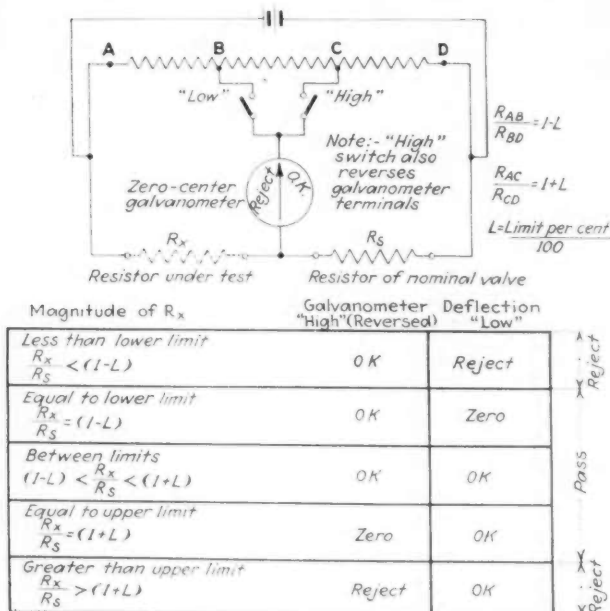 A B C D
"Low" "High"
R_AB / R_BD = 1-L
Note:- "High"
switch also
reverses
galvanometer
terminals
R_AC / R_CD = 1+L
Zero-center
galvanometer
Reject
O.K.
L = Limit per cent / 100
Rx Rs
Resistor under test Resistor of nominal valve
Magnitude of Rx
Galvanometer Deflection
"High"(Reversed) "Low"
Less than lower limit
Rx / Rs < (1-L) OK Reject
Reject
Equal to lower limit
Rx / Rs = (1-L) OK Zero
Between limits
(1-L) < Rx / Rs < (1+L) OK OK
Pass
Equal to upper limit
Rx / Rs = (1+L) Zero OK
Greater than upper limit
Rx / Rs > (1+L) Reject OK
Reject